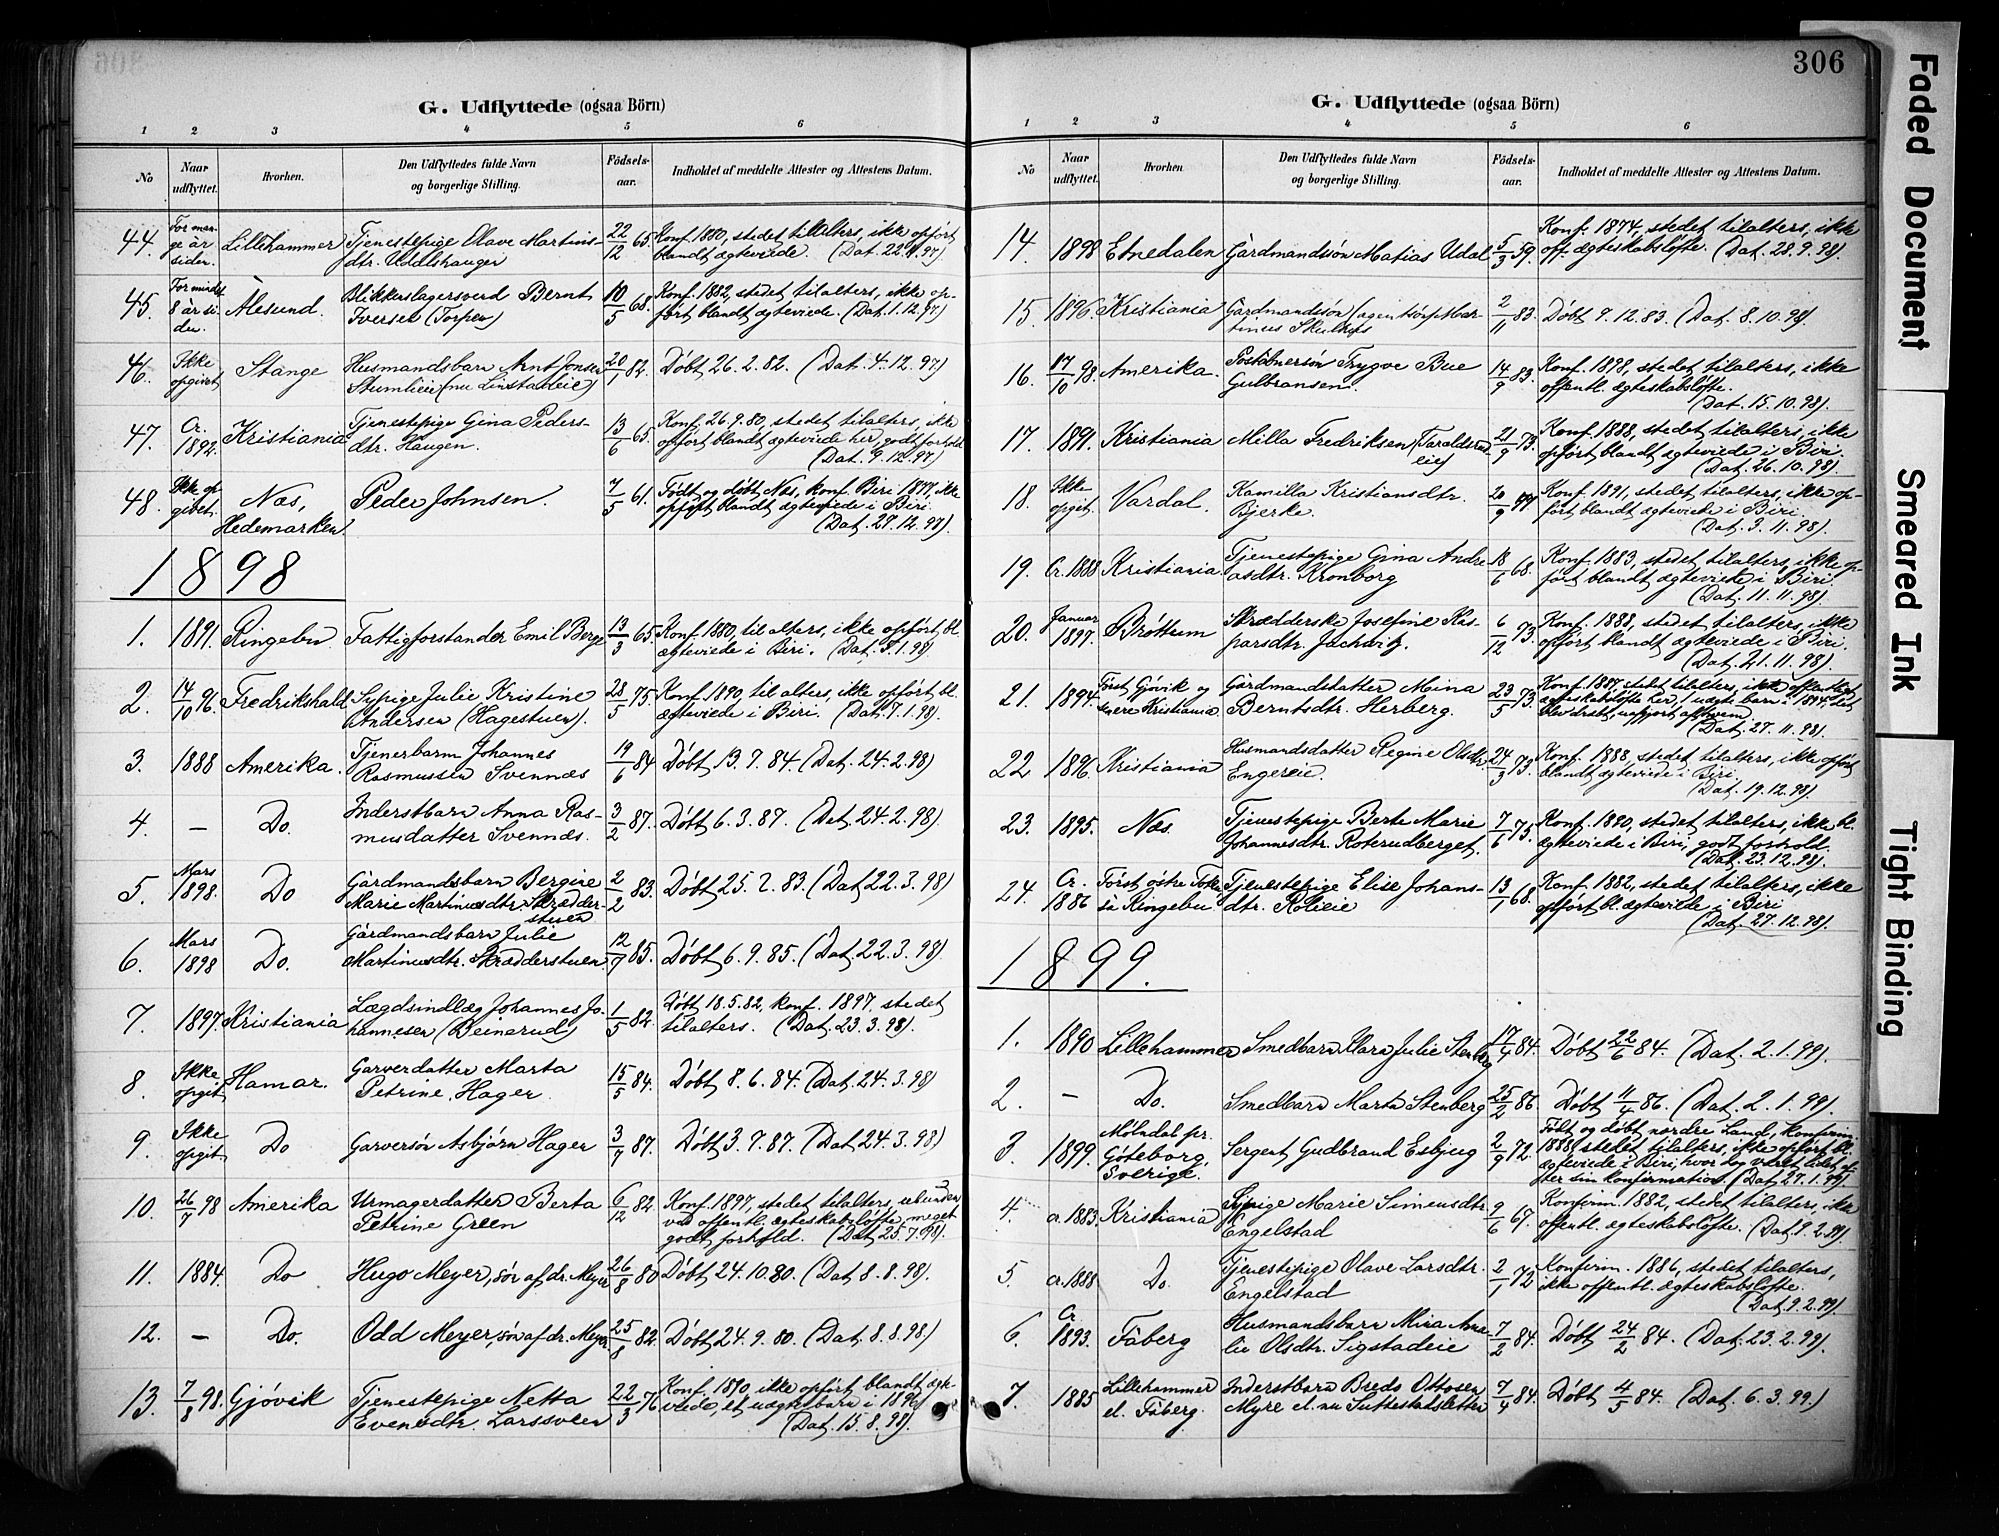 306
G. Udflyttede (ogsaa Börn)
1 2 3 4 5 6
No
Naar udflyttet.
Hvorhen.
Den Udflyttedes fulde Navn
og borgerlige Stilling.
Födsels-
aar.
Indholdet af meddelte Attester og Attestens Datum.
44. For man-
ge år
siden.
Lillehammer
Tjenestepige Olave Martins-
dtr. Uddlshauger
22/12 65.
Konf. 1880, stedet tilalters, ikke opført
blandt ægteviede. (Dat. 22.11.97)
45. For mindst
8 år si-
den.
Ålesund.
Blikkenslagersvend Bernt
Iversen (Torpen)
10/5 68.
Konf. 1882, stedet tilalters, ikke op-
ført blandt ægteviede. (Dat. 1.12.97)
46. Ikke
opgivet
Stange
Husmandsbarn Arnt Jonsen
Stumlieie (nu Linstadeie)
20/1 82.
Døbt 26.2.82. (Dat. 4.12.97)
47. Cr.
1892.
Kristiania
Tjenestepige Gina Peders-
dtr. Haugen.
13/6 65.
Konf. 26.9.80, stedet tilalters, ikke
opført blandt ægteviede her, godt forhold
(Dat. 9.12.97)
48. Ikke op-
givet.
Næs,
Hedemarken
Peder Johnsen.
7/5 61.
Født og døbt Næs, konf. Biri 1877, ikke
opført blandt ægteviede i Biri.
(Dat. 27.12.97).
1898
1. 1891. Ringebu
Fattigforstander Emil Berge
13/3 65.
Konf. 1880, til alters, ikke opført bl.
ægteviede i Biri. (Dat. 3.1.98).
2. 14/10 96. Fredrikshald
Sypige Julie Kristine
Andersen (Hagestuen).
28/5 75.
Konf. 1890, til alters, ikke opført bl.
ægteviede i Biri. (Dat. 7.1.98).
3. 1888 Amerika.
Tjenerbarn Johannes
Rasmussen Svennæs
19/6 84
Døbt 13.7.84. (Dat. 24.2.98)
4. — Do.
Inderstbarn Anna Ras-
musdatter Svennæs.
3/2 87.
Døbt 6.3.87. (Dat. 24.2.98)
5. Mars
1898. Do
Gårdmandsbarn Bergine
Marie Martinusdtr. Skrædder-
stuen
2/2 83.
Døbt 25.2.83. (Dat. 22.3.98)
6. Mars
1898 Do.
Gårdmandsbarn Julie
Martinusdtr. Skrædderstuen
12/7 85.
Døbt 6.9.85. (Dat. 22.3.98).
7. 1897. Kristiania
Lægdsindlæg Johannes Jo-
hannesen (Beinerud)
1/5 82.
Døbt 18.5.82, konf. 1897, stedet
tilalters. (Dat. 23.3.98).
8. Ikke
opgit Hamar.
Garverdatter Marta
Petrine Hager.
15/5 84.
Døbt 8.6.84. (Dat. 24.3.98)
9. Ikke
opgit Do
Garversøn Asbjørn Hager
3/4 87.
Døbt 3.7.87. (Dat. 24.3.98)
10. 26/7 98 Amerika
Urmagerdatter Berta
Petrine Green
6/12 82.
Konf. 1897, stedet tilalters, ubunden
ved offentl. ægteskabsløfte, meget
godt forhold. (Dat. 25.7.98).
11. 1884. Do
Hugo Meyer, søn af dr. Meyer
26/8 80
Døbt 24.10.80. (Dat. 8.8.98).
12. — Do.
Odd Meyer, søn af dr. Meyer
25/8 82.
Døbt 24.9.80. (Dat. 8.8.98.)
13. 7/8 98. Gjøvik
Tjenestepige Netta
Evensdtr. Larssveen
22/3 76
Konf. 1890, ikke opført blandt ægte-
viede, et uægte barn i 1896
(Dat. 15.8.98).
G. Udflyttede (ogsaa Börn)
1 2 3 4 5 6
No
Naar udflyttet.
Hvorhen
Den Udflyttedes fulde Navn
og borgerlige Stilling.
Födsels-
aar.
Indholdet af meddelte Attester og Attestens Datum.
14. 1898 Etnedalen
Gårdmandssøn Matias Udal
5/3 59.
Konf. 1874, stedet tilalters, ikke
off. ægteskabsløfte. (Dat. 28.9.98).
15. 1896. Kristiania
Gårdmandssøn (agentsøn) Mar-
tinus
2/11 83.
Døbt 9.12.83. (Dat. 8.10.98).
16. 17/10 98. Amerika.
Postbudsersøn Trygve Bue
Gulbransen.
14/9 83.
Konf. 1898, stedet tilalters, ikke
offentl. ægteskabsløfte.
(Dat. 15.10.98).
17. 1891. Kristiania
Milla Fredriksen (Taraldsrud-
eie)
21/9 73.
Konf. 1888, stedet tilalters, ikke
opført blandt ægteviede i Biri.
(Dat. 26.10.98).
18. Ikke
opgit. Vardal.
Kamilla Kristiansdtr.
Bjerke.
20/9 77
Konf. 1891, stedet tilalters, ikke op-
ført blandt ægteviede i Biri.
(Dat. 3.11.98).
19. Cr. 1888 Kristiania.
Tjenestepige Gina Andre-
asdtr. Kronborg
18/6 68.
Konf. 1883, stedet tilalters, ikke op-
ført blandt ægteviede i Biri.
(Dat. 11.11.98).
20. Januar
1897. Brøttum
Skrædderske Josefine Kas-
parsdtr.
6/12 73.
Konf. 1888, stedet tilalters, ikke
opført blandt ægteviede i Biri.
(Dat. 21.11.98).
21. 1894. Først Gjøvik og
senere Kristiania.
Gårdmandsdatter Mina
Berntsdtr. Herberg.
23/5 73.
Konf. 1887, stedet tilalters, ikke offentligt
ægteskabsløfte her, 1 uægte barn i 1894,
(Dat. 27.11.98).
22 1896. Kristiania
Husmandsdatter Regine Olsdtr.
Engereie.
24/3 73.
Konf. 1888, stedet tilalters, ikke opført
blandt ægteviede i Biri.
(Dat. 19.12.98).
23. 1895. Næs.
Tjenestepige Berte Marie
Johannesdtr. Roterudberget.
7/6 75.
Konf. 1890, stedet tilalters, ikke bl.
ægteviede i Biri, godt forhold.
(Dat. 23.12.98).
24. Cr.
1886 Først østre Toten
så Ringebu
Tjenestepige Elise Johans-
dtr. Kolieie
13/1 68.
Konf. 1882, stedet tilalters, ikke
opført bl. ægteviede i Biri
(Dat. 27.12.98).
1899.
1. 1890 Lillehammer
Smedbarn Klara Julie Stenberg
17/4 84.
Døbt 22/6 84. (Dat. 2.1.99).
2. — Do.
Smedbarn Marta Stenberg
25/2 86.
Døbt 11/4 86. (Dat. 2.1.99).
3. 1899. Mølndal pr.
Göteborg,
Sverige.
Sergent Gudbrand Esbjug
2/9 72.
Født og døbt nordre Land, konfirm.
1888, stedet tilalters, ikke opført bl.
ægteviede i Biri, hvor har været siden ef-
ter sin konfirmation. (Dat. 27.1.99).
4. cr. 1883. Kristiania
Sypige Marie Simensdtr.
Engelstad
9/6 67.
Konfirm. 1882, stedet tilalters, ikke
offentl. ægteskabsløfte. (Dat. 9.2.99).
5. cr. 1888 Do.
Tjenestepige Olave Larsdtr.
Engelstad
2/1 72
Konfirm. 1886, stedet tilalters,
ikke offentl. ægteskabsløfte.
(Dat. 9.2.99).
6. Cr.
1893. Fåberg
Husmandsbarn Mina Ama-
lie Olsdtr. Sigstadeie
7/2 84.
Døbt 24/2 84. (Dat. 23.2.99).
7. 1885 Lillehammer
el. Fåberg.
Inderstbarn Bredo Ottosen
Myre el. nu Suttestadsletten
7/4 84.
Døbt 4/5 84. (Dat. 6.3.99.)
Faded Document
Smeared Ink
Tight Binding